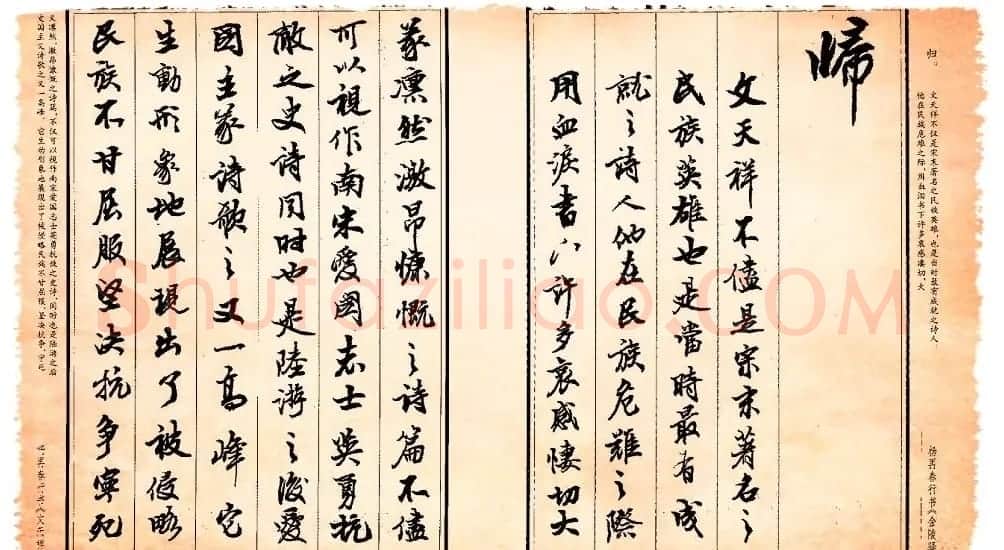 歸
文天祥不僅是宗末著名之
民族英雄也是當時最有成
就之詩人他在民族危難之際
用血淚書下許多哀感悽切大
義凛然激昂慷慨之詩篇不儘
可以視作南宋愛國志士英勇抗
敵之史詩同时也是陸游之後愛
國主義詩歌之又一高峰它
生動形象地展現出了被侵略
民族不甘屈服坚决抗争寧死
归。
文天祥不仅是宋末著名之民族英雄，也是当时最有成就之诗人
他在民族危难之际，用血泪书下许多哀感凄切、大
杨再春行书《金陵驿
义凛然、激昂慷慨之诗篇，不仅可以视作南宋爱国志士英勇抗敌之史诗，同时也是陆游之后爱
国主义诗歌之又一高峰。它生动形象地展现出了被侵略民族不甘屈服、坚决抗争、宁死
Shufaziliao.COM